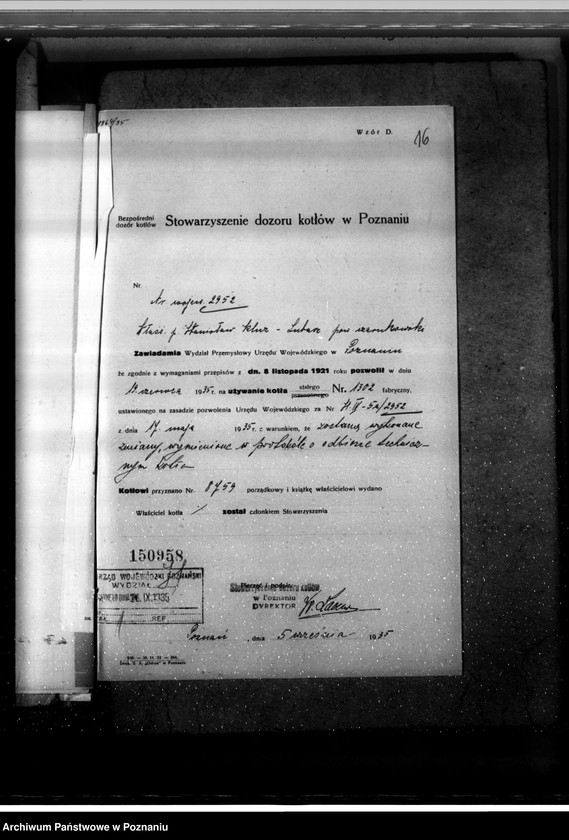 Wzór D.
16
Bezpośredni
dozór kotłów
Stowarzyszenie dozoru kotłów w Poznaniu
Nr
Nr. wojew. 2952
Właśc. p. Stanisław Klur - Lubasz pow. czarnkowski
Zawiadamia Wydział Przemysłowy Urzędu Wojewódzkiego w Poznaniu
że zgodnie z wymaganiami przepisów z dn. 8 listopada 1921 roku pozwolił w dniu
czerwca 1935 r. na używanie kotła stałego przenośnego Nr. 1302 fabryczny,
ustawionego na zasadzie pozwolenia Urzędu Wojewódzkiego za Nr 2952
z dnia 17. maja 1935 r. z warunkiem, że zostaną wykonane
zmiany, wymienione w protokóle o odbiorze technicz-
nym kotła
Kotłowi przyznano Nr. 8759 porządkowy i książkę właścicielowi wydano
Właściciel kotła / został członkiem Stowarzyszenia
150958
URZĄD WOJEWÓDZKI POZNAŃSKI
WYDZIAŁ
IX. 1935
REF.
Pieczęć i podpis
Stowarzyszenie dozoru kotłów
w Poznaniu
DYREKTOR
Poznań, dnia 5 września 1935
Archiwum Państwowe w Poznaniu